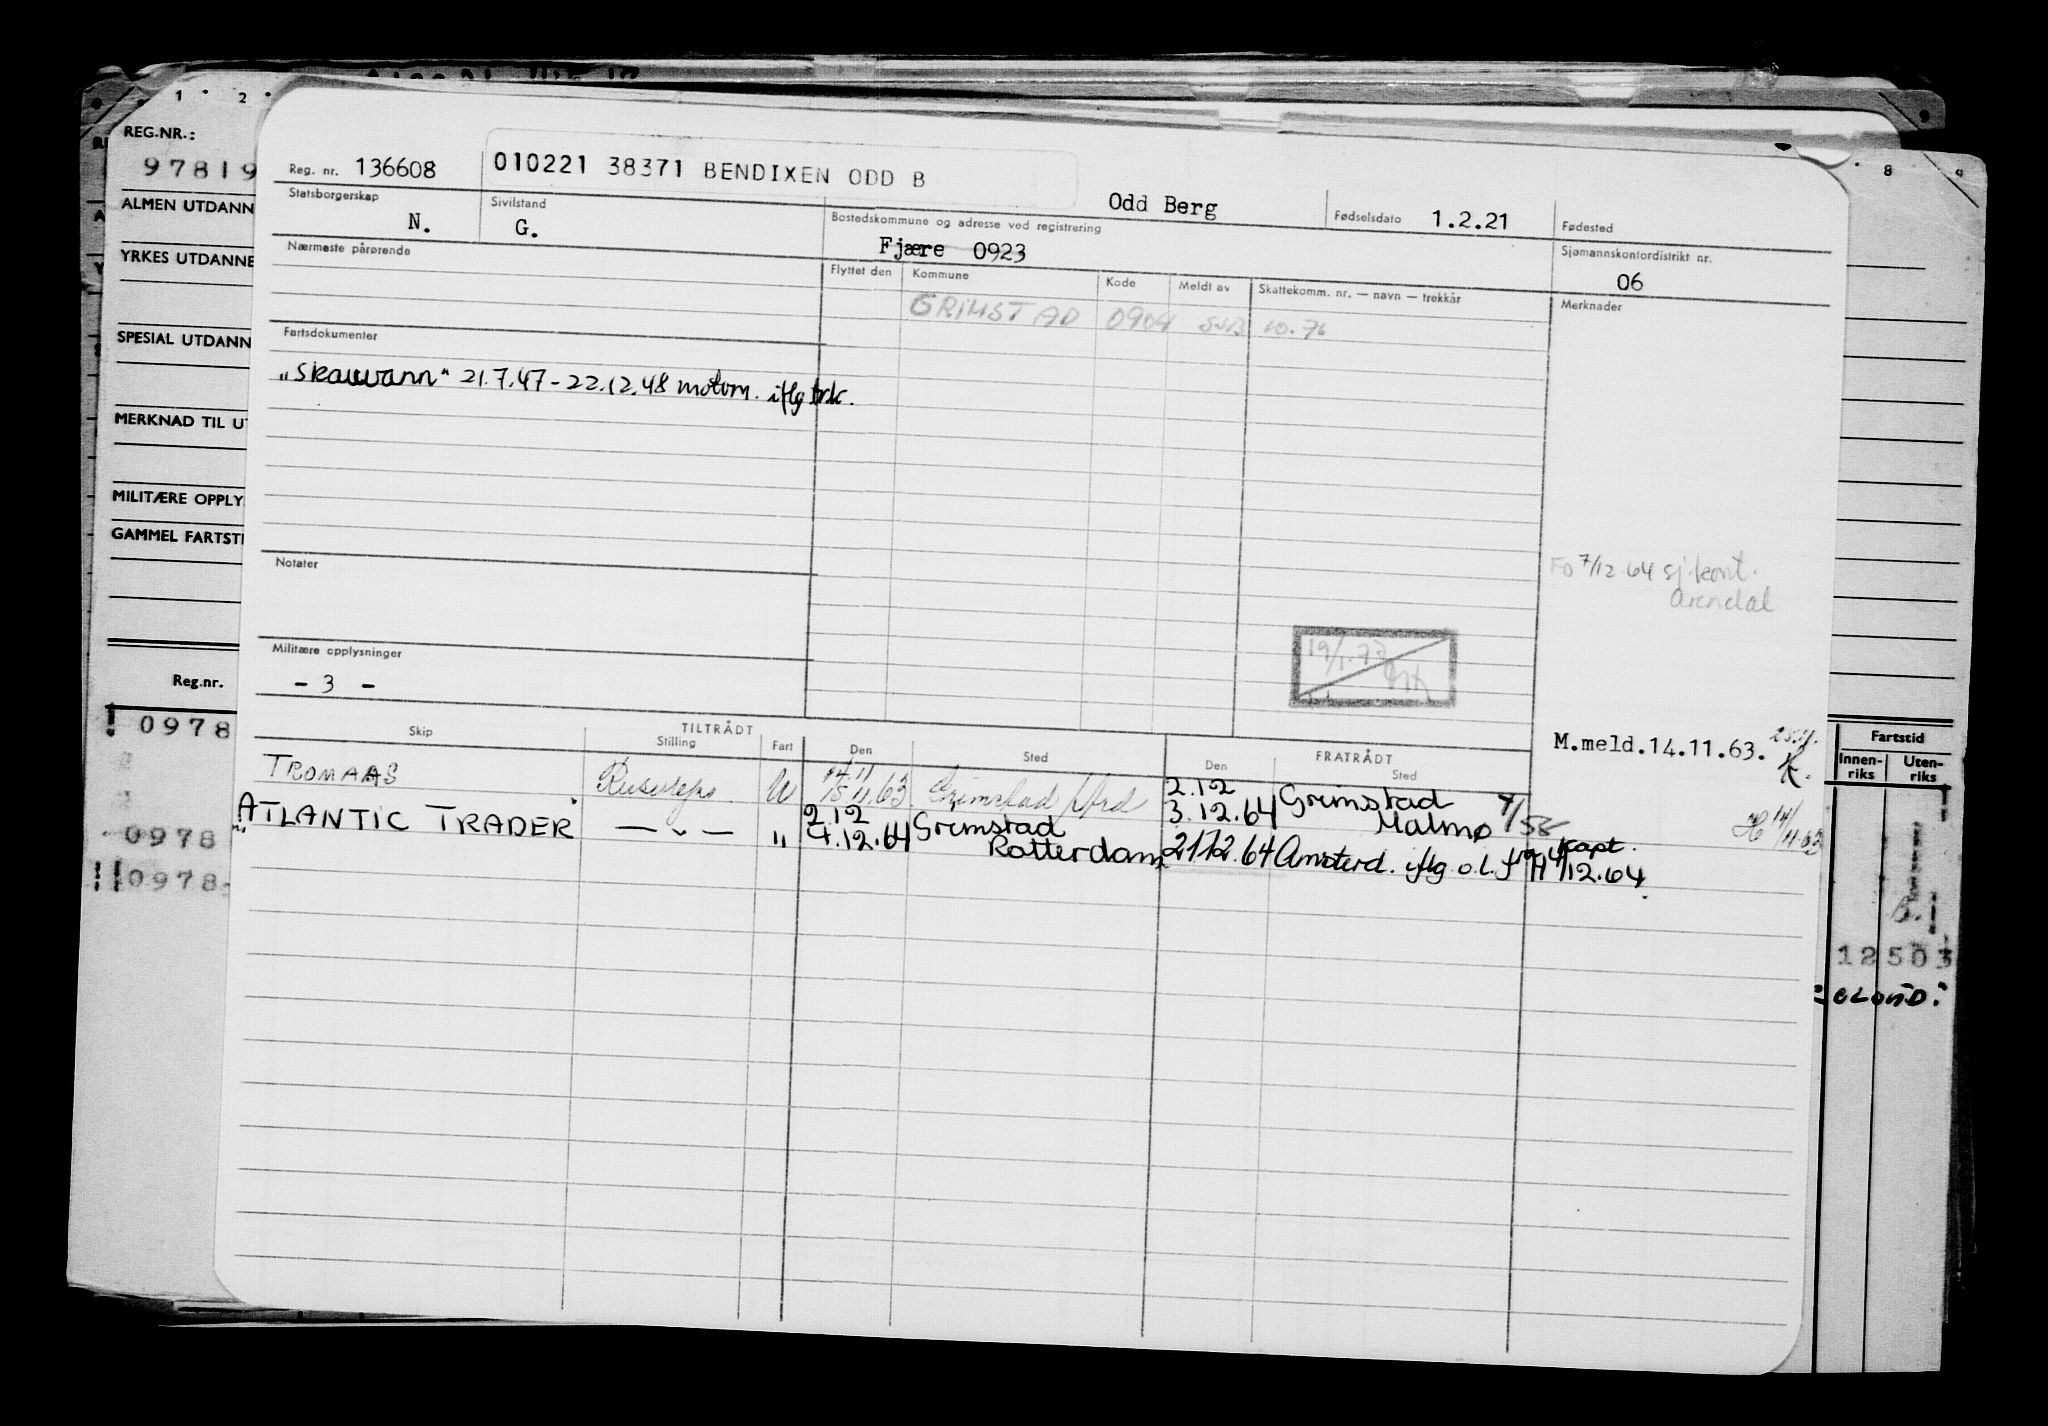 1 2
8 9
REG.NR.:
97819
ALMEN UTDANN
YRKES UTDANNE
SPESIAL UTDANN
MERKNAD TIL UT
MILITÆRE OPPLY
GAMMEL FARTSTI
Reg.nr.
! 0978
0978
!! 0978
Reg. nr. 136608
010221 38371 BENDIXEN ODD B
Odd Berg
Fødselsdato 1.2.21
Fødested
Statsborgerskap
N.
Sivilstand
G.
Bostedskommune og adresse ved registrering
Fjære 0923
Sjømannskontordistrikt nr.
06
Nærmeste pårørende
Flyttet den Kommune Kode Meldt av Skattekomm. nr. — navn — trekkår
Merknader
GRIMSTAD 0904 10.76
Fartsdokumenter
"Skauvann" 21.7.47-22.12.48 motorm. iflg
7/12 64 sj.kont.
Arendal
Notater
Militære opplysninger
- 3 -
19/1.73
M.meld.14.11.63.
Skip
TILTRÅDT
Stilling Fart Den Sted
FRATRÅDT
Den Sted
Fartstid
Innen-riks Uten-riks
TROMAAS U 14.11 15.11.63 Grimstad 2.12 3.12.64 Grimstad Malmø
ATLANTIC TRADER — " — " 2.12 4.12.64 Grimstad Rotterdam 21.12.64 Amsterd. iflg o.l. fra kapt. 12.64
14/11.63
12503